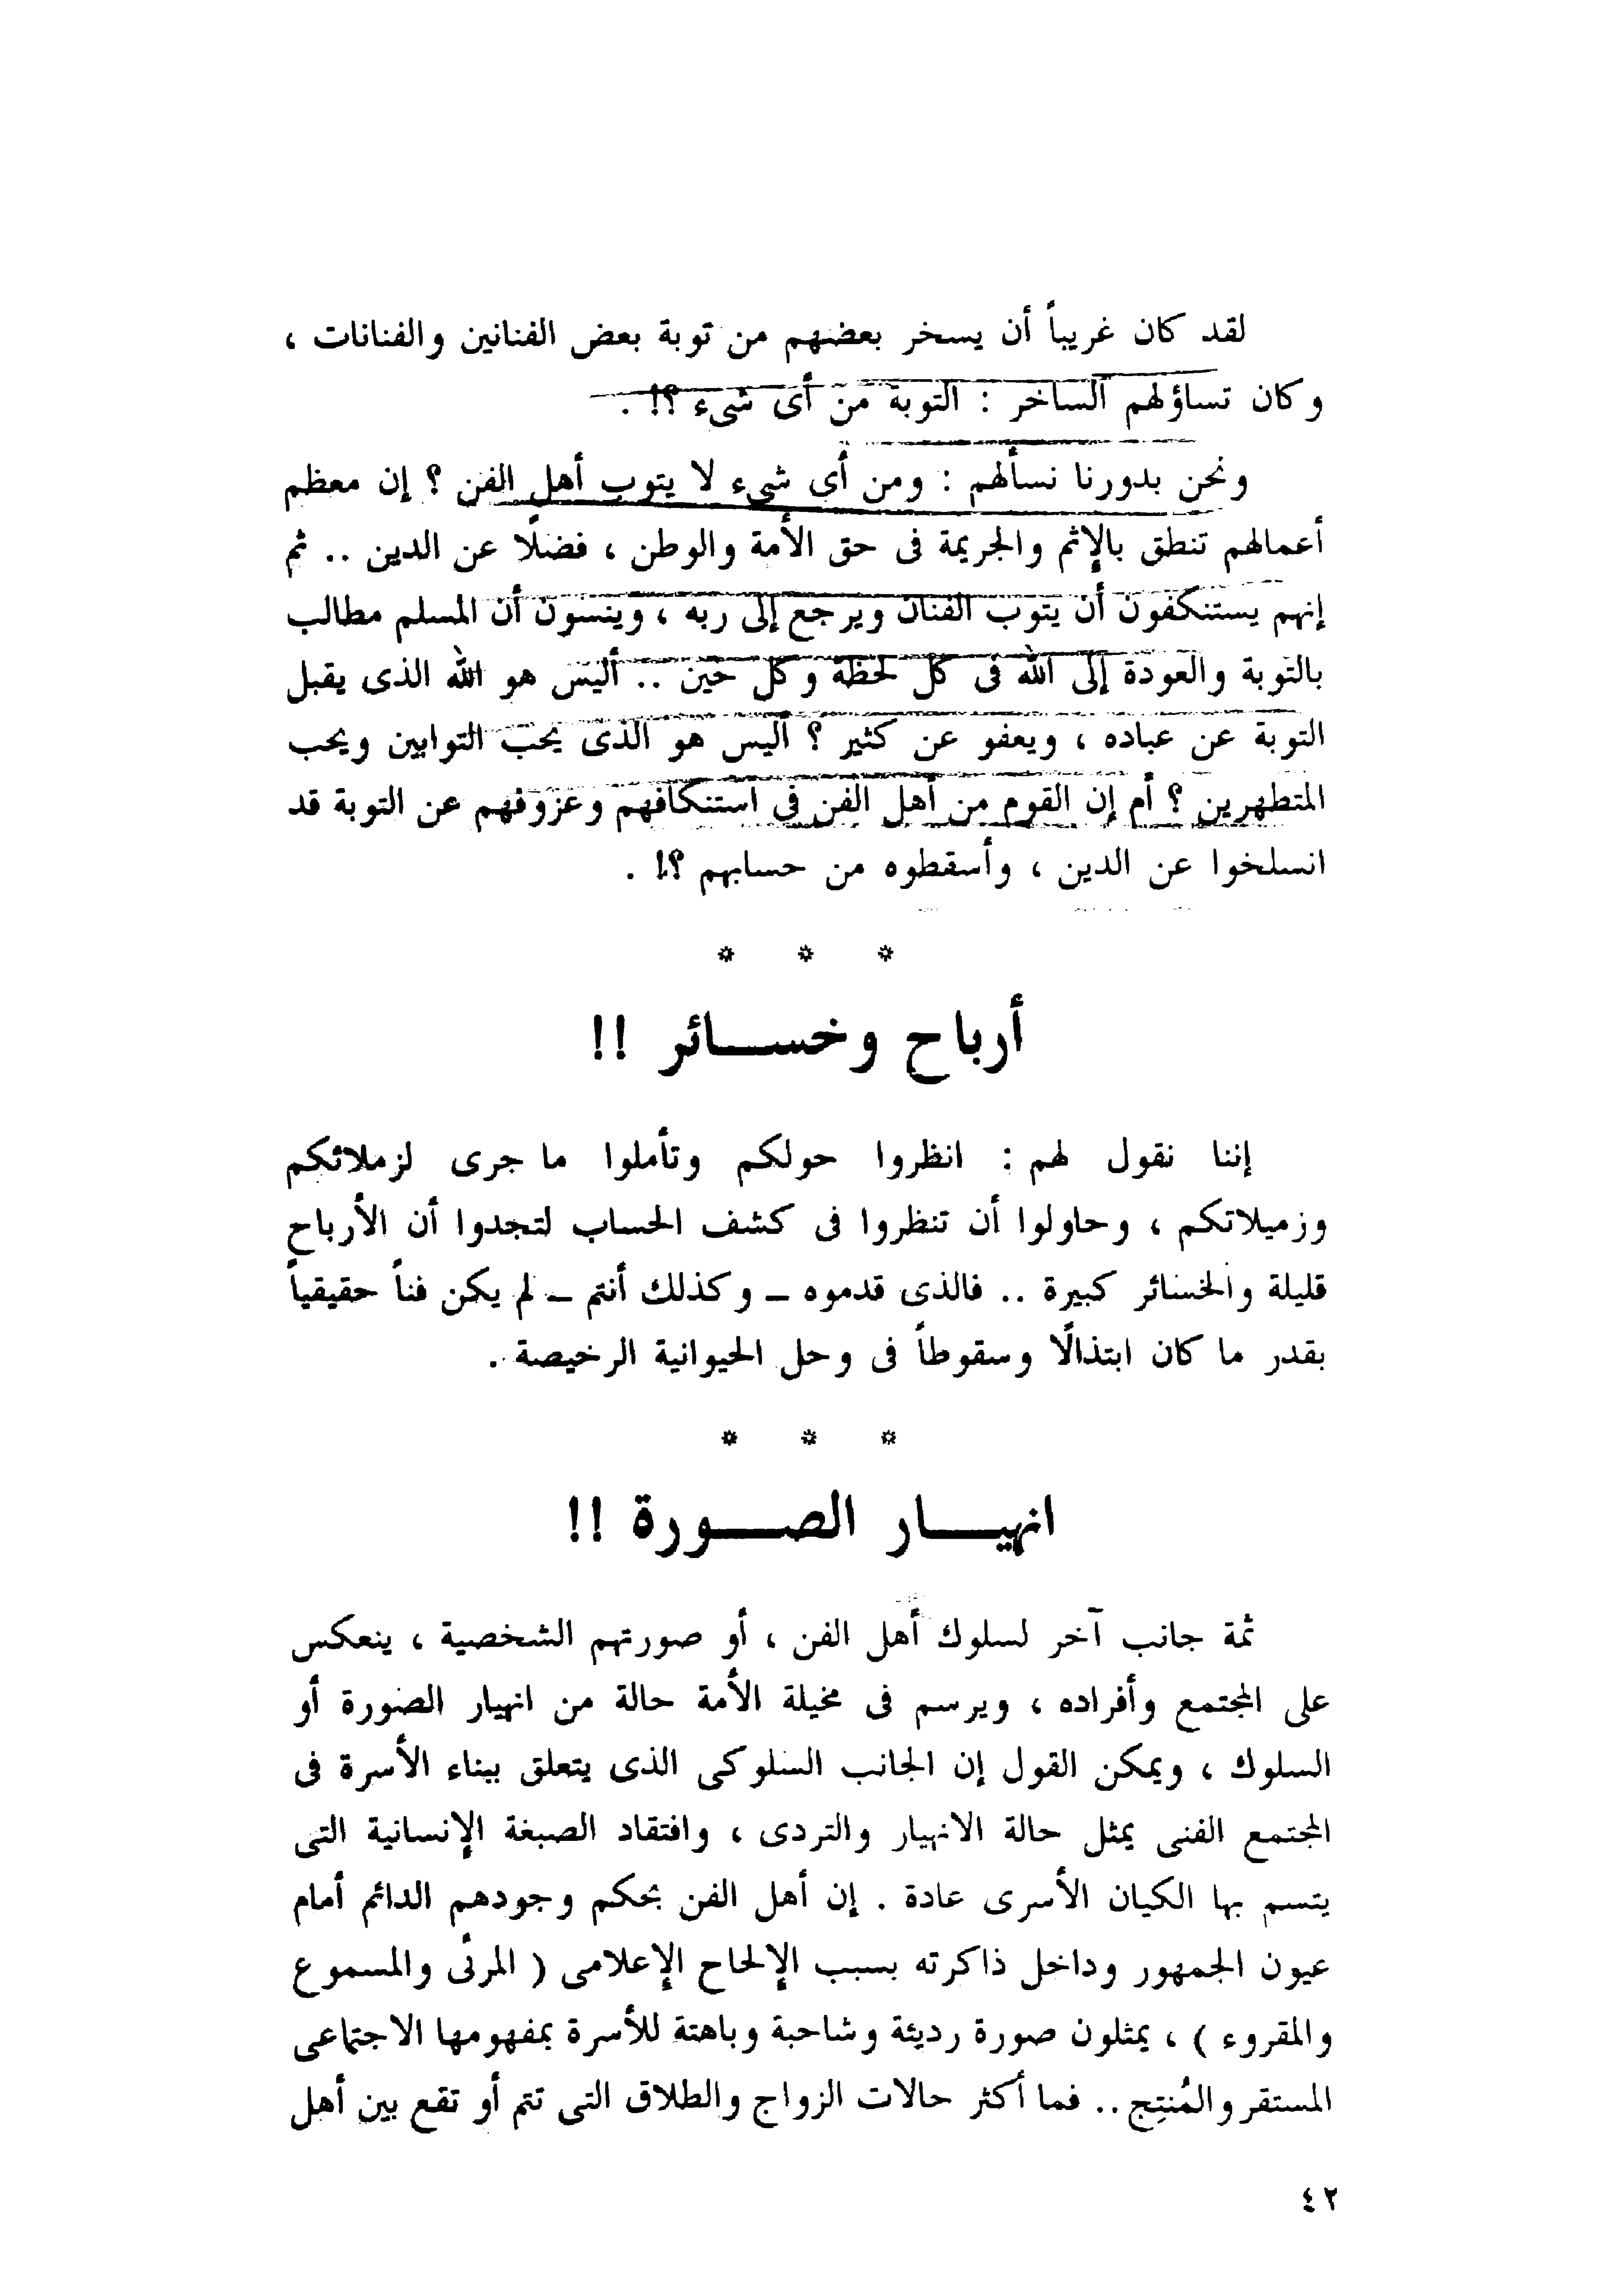 لقد كان غريباً أن يسخر بعضهم من توبة بعض الفنانين والفنانات ،
وكان تساؤلهم الساخر : التوبة من أى شىء ؟! .
ونحن بدورنا نسألهم : ومن أى شىء لا يتوب أهل الفن ؟ إن معظم
أعمالهم تنطق بالإثم والجريمة فى حق الأمة والوطن ، فضلًا عن الدين .. ثم
إنهم يستنكفون أن يتوب الفنان ويرجع إلى ربه ، وينسون أن المسلم مطالب
بالتوبة والعودة إلى الله فى كل لحظة وكل حين .. أليس هو الله الذى يقبل
التوبة عن عباده ، ويعفو عن كثير ؟ أليس هو الذى يحب التوابين ويحب
المتطهرين ؟ أم إن القوم من أهل الفن فى استنكافهم وعزوفهم عن التوبة قد
انسلخوا عن الدين ، وأسقطوه من حسابهم ؟! .
* * *
أربـاح وخســائر !!
إننا نقول لهم : انظروا حولكم وتأملوا ما جرى لزملائكم
وزميلاتكم ، وحاولوا أن تنظروا فى كشف الحساب لتجدوا أن الأرباح
قليلة والخسائر كبيرة .. فالذى قدموه – وكذلك أنتم – لم يكن فناً حقيقياً
بقدر ما كان ابتذالًا وسقوطاً فى وحل الحيوانية الرخيصة .
* * *
انهيــار الصــورة !!
ثمة جانب آخر لسلوك أهل الفن ، أو صورتهم الشخصية ، ينعكس
على المجتمع وأفراده ، ويرسم فى مخيلة الأمة حالة من انهيار الصورة أو
السلوك ، ويمكن القول إن الجانب السلوكى الذى يتعلق ببناء الأسرة فى
المجتمع الفنى يمثل حالة الانهيار والتردى ، وافتقاد الصبغة الإنسانية التى
يتسم بها الكيان الأسرى عادة . إن أهل الفن بحكم وجودهم الدائم أمام
عيون الجمهور وداخل ذاكرته بسبب الإلحاح الإعلامى ( المرئى والمسموع
والمقروء ) ، يمثلون صورة رديئة وشاحبة وباهتة للأسرة بمفهومها الاجتماعى
المستقر والمُنتِج .. فما أكثر حالات الزواج والطلاق التى تتم أو تقع بين أهل
٤٢